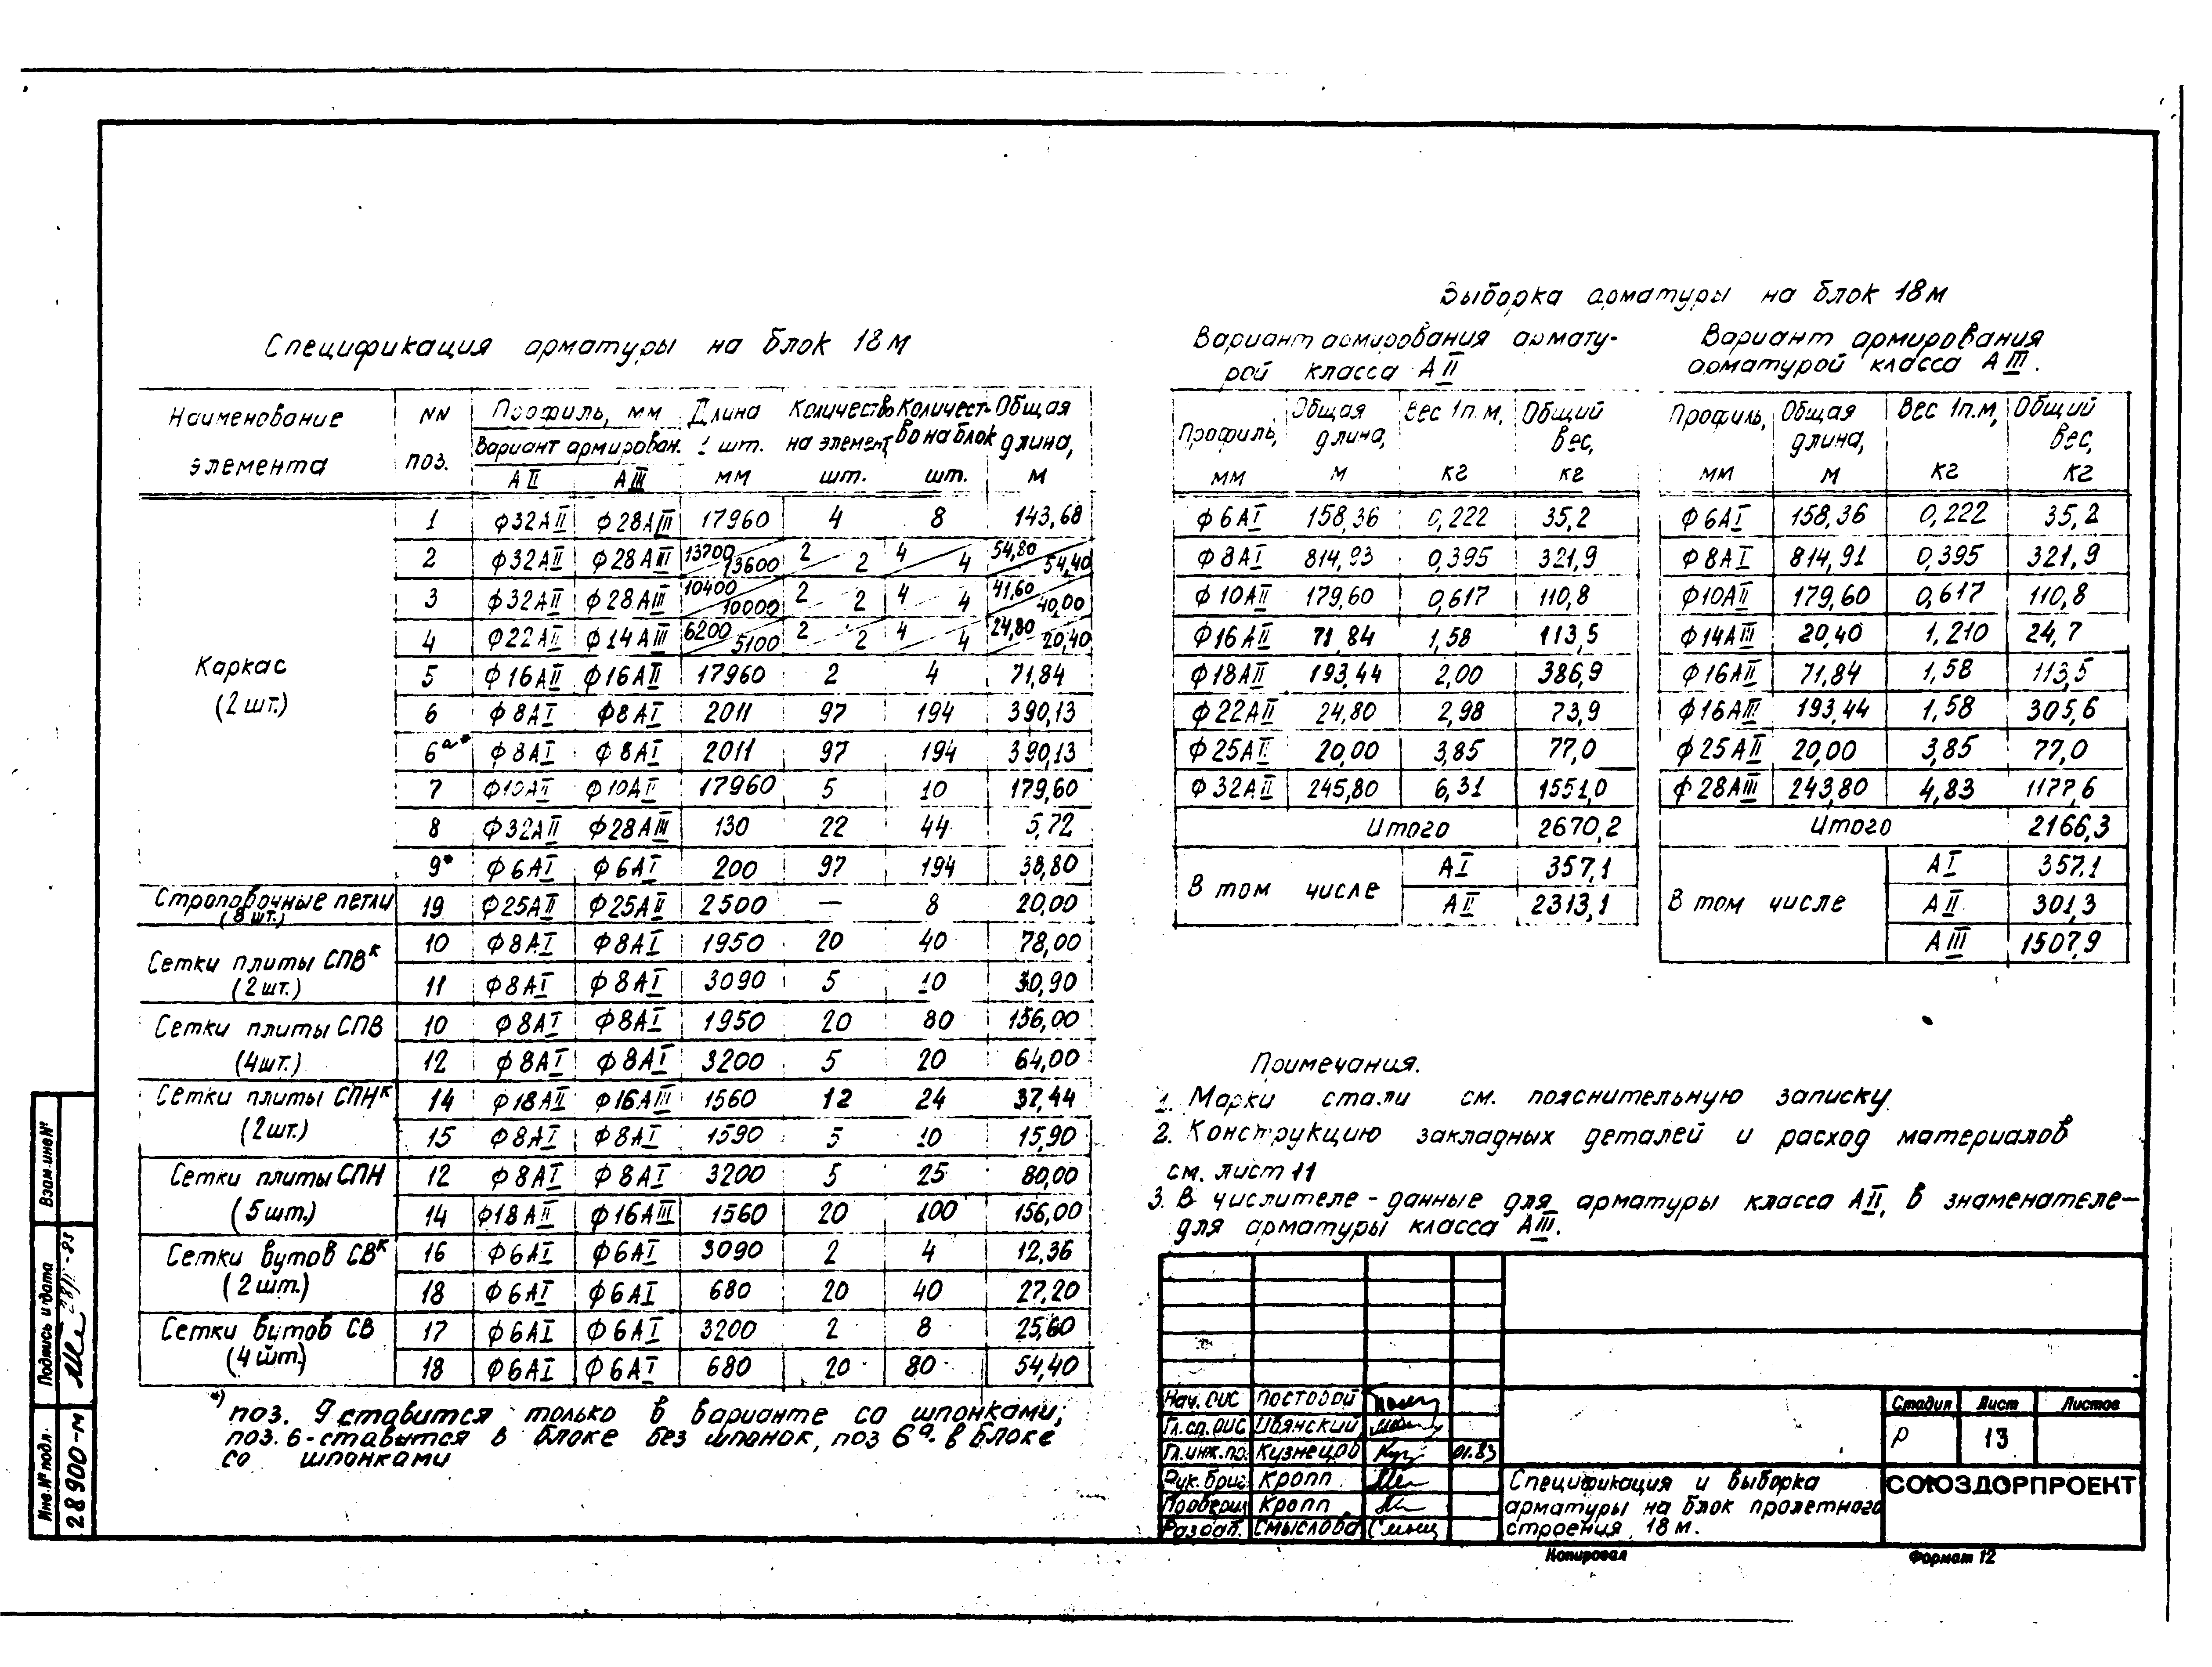 Спецификация арматуры на блок 18 м
Наименование элемента | NN поз. | Профиль, мм Вариант армирован. АII | АIII | Длина 1 шт. мм | Количество на элемент, шт. | Количество на блок шт. | Общая длина, м
Каркас (2 шт.)
1 | ϕ32АII | ϕ28АIII | 17960 | 4 | 8 | 143,68
2 | ϕ32АII | ϕ28АIII | 13700/13600 | 2/2 | 4/4 | 54,80/54,40
3 | ϕ32АII | ϕ28АIII | 10400/10000 | 2/2 | 4/4 | 41,60/40,00
4 | ϕ22АII | ϕ14АIII | 6200/5100 | 2/2 | 4/4 | 24,80/20,40
5 | ϕ16АII | ϕ16АII | 17960 | 2 | 4 | 71,84
6 | ϕ8АI | ϕ8АI | 2011 | 97 | 194 | 390,13
6а* | ϕ8АI | ϕ8АI | 2011 | 97 | 194 | 390,13
7 | ϕ10АII | ϕ10АII | 17960 | 5 | 10 | 179,60
8 | ϕ32АII | ϕ28АIII | 130 | 22 | 44 | 5,72
9* | ϕ6АI | ϕ6АI | 200 | 97 | 194 | 38,80
Строповочные петли (8 шт.) | 19 | ϕ25АII | ϕ25АII | 2500 | — | 8 | 20,00
Сетки плиты СПВк (2 шт.)
10 | ϕ8АI | ϕ8АI | 1950 | 20 | 40 | 78,00
11 | ϕ8АI | ϕ8АI | 3090 | 5 | 10 | 30,90
Сетки плиты СПВ (4шт.)
10 | ϕ8АI | ϕ8АI | 1950 | 20 | 80 | 156,00
12 | ϕ8АI | ϕ8АI | 3200 | 5 | 20 | 64,00
Сетки плиты СПНк (2шт.)
14 | ϕ18АII | ϕ16АIII | 1560 | 12 | 24 | 37,44
15 | ϕ8АI | ϕ8АI | 1590 | 5 | 10 | 15,90
Сетки плиты СПН (5 шт.)
12 | ϕ8АI | ϕ8АI | 3200 | 5 | 25 | 80,00
14 | ϕ18АII | ϕ16АIII | 1560 | 20 | 100 | 156,00
Сетки вутов СВк (2 шт.)
16 | ϕ6АI | ϕ6АI | 3090 | 2 | 4 | 12,36
18 | ϕ6АI | ϕ6АI | 680 | 20 | 40 | 27,20
Сетки вутов СВ (4 шт.)
17 | ϕ6АI | ϕ6АI | 3200 | 2 | 8 | 25,60
18 | ϕ6АI | ϕ6АI | 680 | 20 | 80 | 54,40
*) поз. 9 ставится только в варианте со шпонками;
поз. 6-ставится в блоке без шпонок, поз 6а. в блоке
со шпонками
Выборка арматуры на блок 18 м
Вариант армирования армату-
рой класса АII
Профиль, мм | Общая длина, м | Вес 1п.м, кг | Общий вес, кг
ϕ6АI | 158,36 | 0,222 | 35,2
ϕ8АI | 814,93 | 0,395 | 321,9
ϕ10АII | 179,60 | 0,617 | 110,8
ϕ16АII | 71,84 | 1,58 | 113,5
ϕ18АII | 193,44 | 2,00 | 386,9
ϕ22АII | 24,80 | 2,98 | 73,9
ϕ25АII | 20,00 | 3,85 | 77,0
ϕ32АII | 245,80 | 6,31 | 1551,0
Итого | 2670,2
В том числе | АI | 357,1
АII | 2313,1
Вариант армирования
арматурой класса АIII.
Профиль, мм | Общая длина, м | Вес 1п.м, кг | Общий вес, кг
ϕ6АI | 158,36 | 0,222 | 35,2
ϕ8АI | 814,91 | 0,395 | 321,9
ϕ10АII | 179,60 | 0,617 | 110,8
ϕ14АIII | 20,40 | 1,210 | 24,7
ϕ16АII | 71,84 | 1,58 | 113,5
ϕ16АIII | 193,44 | 1,58 | 305,6
ϕ25АII | 20,00 | 3,85 | 77,0
ϕ28АIII | 243,80 | 4,83 | 1177,6
Итого | 2166,3
В том числе | АI | 357,1
АII | 301,3
АIII | 1507,9
Примечания.
1. Марки стали см. пояснительную записку
2. Конструкцию закладных деталей и расход материалов
см. лист 11
3. В числителе - данные для арматуры класса АII, в знаменателе—
для арматуры класса АIII.
Нач. ОИС Постовой
Гл. сп. ОИС
Гл. инж. пр. Кузнецов 01.83
Рук. бриг. Кропп
Проверил Кропп
Разраб. Смыслова
Спецификация и выборка
арматуры на блок пролетного
строения 18 м.
Стадия Лист Листов
Р 13
СОЮЗДОРПРОЕКТ
Копировал Формат 12
Взам.инв№
Подпись и дата
Инв.№ подл.
28900-м